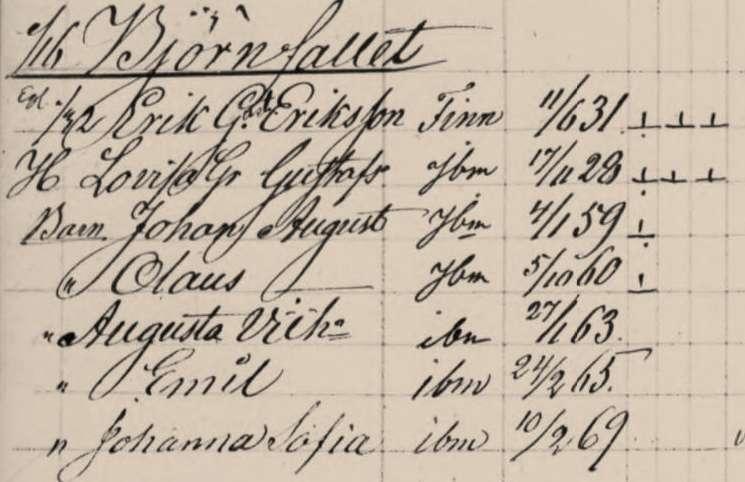 1/16 Björnfallet
Egl. 1/32 Erik Gust Eriksson Finn 11/6 31
H Lovisa Gr Gustafsr Ibm 17/11 28
Barn Johan August Ibm 4/1 59
" Olaus Ibm 5/10 60
" Augusta Vilh:a ibm 27/1 63.
" Emil ibm 24/2 65.
" Johanna Sofia ibm 10/2 69